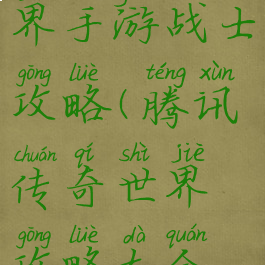 界手游战士
gōng lüè téng xùn
攻略(腾讯
chuán qí shì jiè
传奇世界
gōng lüè dà quán
攻略大全